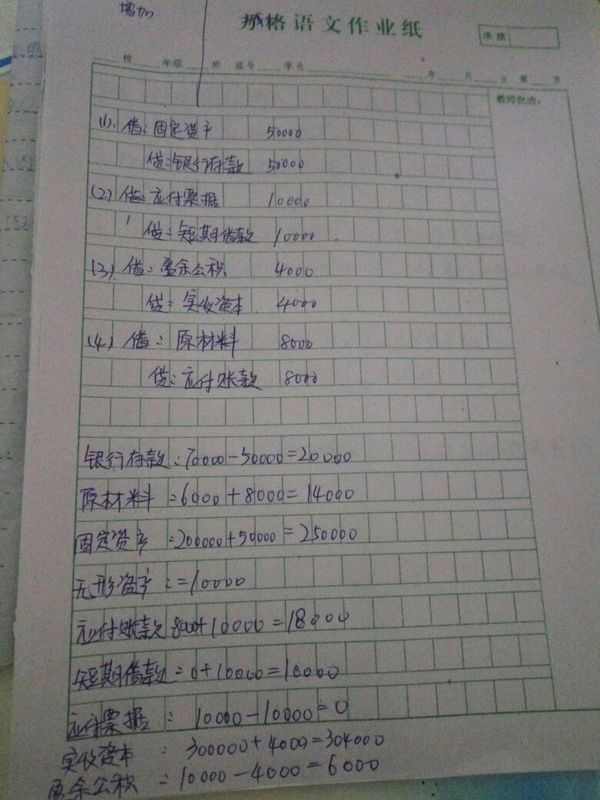 增加
语文作业纸
成绩
校 年级 班 座号 学生 年 月 日 第 页
教师批点:
(1). 借: 固定资产 50000
贷: 银行存款 50000
(2) 借: 应付票据 10000
贷: 短期借款 10000.
(3). 借: 盈余公积 4000
贷: 实收资本. 4000
(4) 借: 原材料 8000
贷: 应付账款 8000
银行存款: 70000-50000=20000
原材料 =6000+8000=14000
固定资产 :=200000+50000=250000
无形资产: =10000
应付账款 8000+10000=18000
短期借款=0+10000=10000
应付票据: 10000-10000=0
实收资本: 300000+4000=304000
盈余公积: =10000-4000=6000